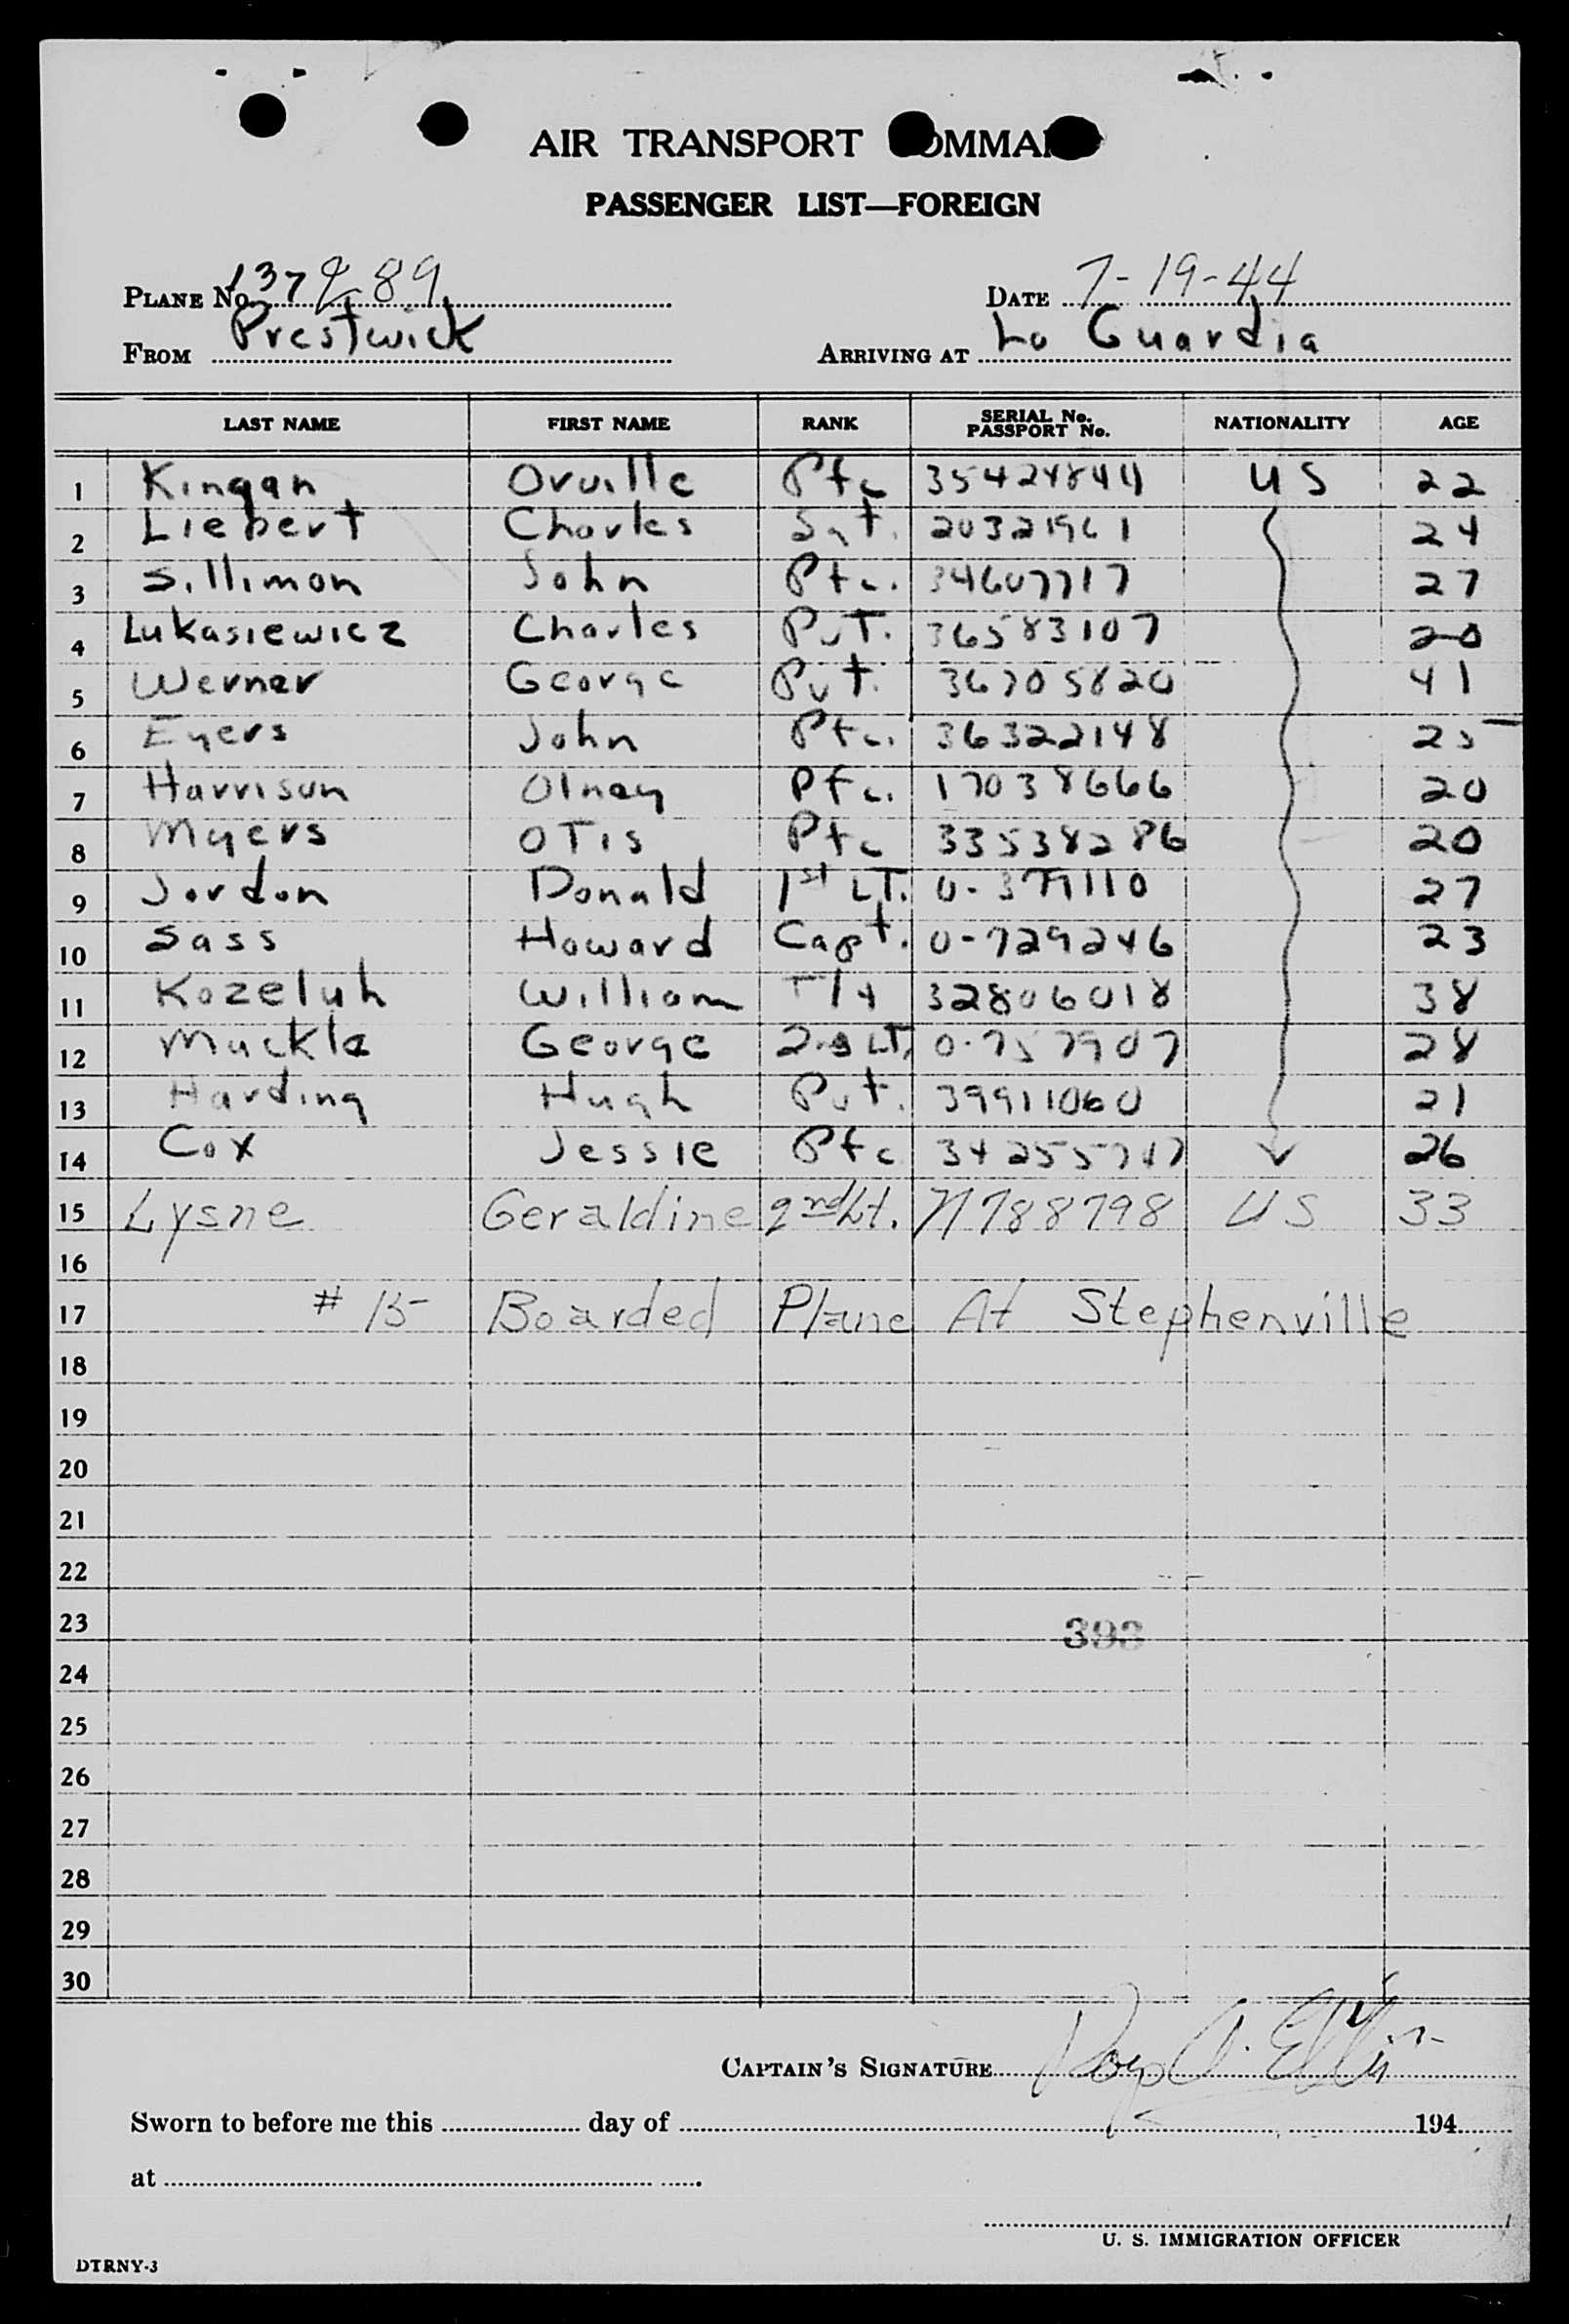 AIR TRANSPORT COMMAND
PASSENGER LIST—FOREIGN
PLANE No. 137989 DATE 7-19-44
FROM Prestwick ARRIVING AT La Guardia
LAST NAME FIRST NAME RANK SERIAL No. PASSPORT No. NATIONALITY AGE
1 Kingan Orville Pfc 35424844 US 22
2 Liebert Charles Sgt. 20321961 24
3 Sillimon John Pfc. 34607717 27
4 Lukasiewicz Charles Pvt. 36583107 20
5 Werner George Pvt. 36705820 41
6 Eyers John Pfc. 36322148 25
7 Harrison Olney Pfc. 17038666 20
8 Myers OTis Pfc 33538286 20
9 Jordon Donald 1st LT. 0-379110 27
10 Sass Howard Capt. 0-729246 23
11 Kozeluh William T/4 32806018 38
12 Muckle George 2nd LT. 0-757907 28
13 Harding Hugh Pvt. 39911060 21
14 Cox Jessie Pfc 34255747 26
15 Lysne Geraldine 2nd Lt. N788798 US 33
16
17 #15 Boarded Plane At Stephenville
18
19
20
21
22
23 393
24
25
26
27
28
29
30
CAPTAIN'S SIGNATURE Roy A. Ellis
Sworn to before me this day of 194
at
U. S. IMMIGRATION OFFICER
DTRNY-3